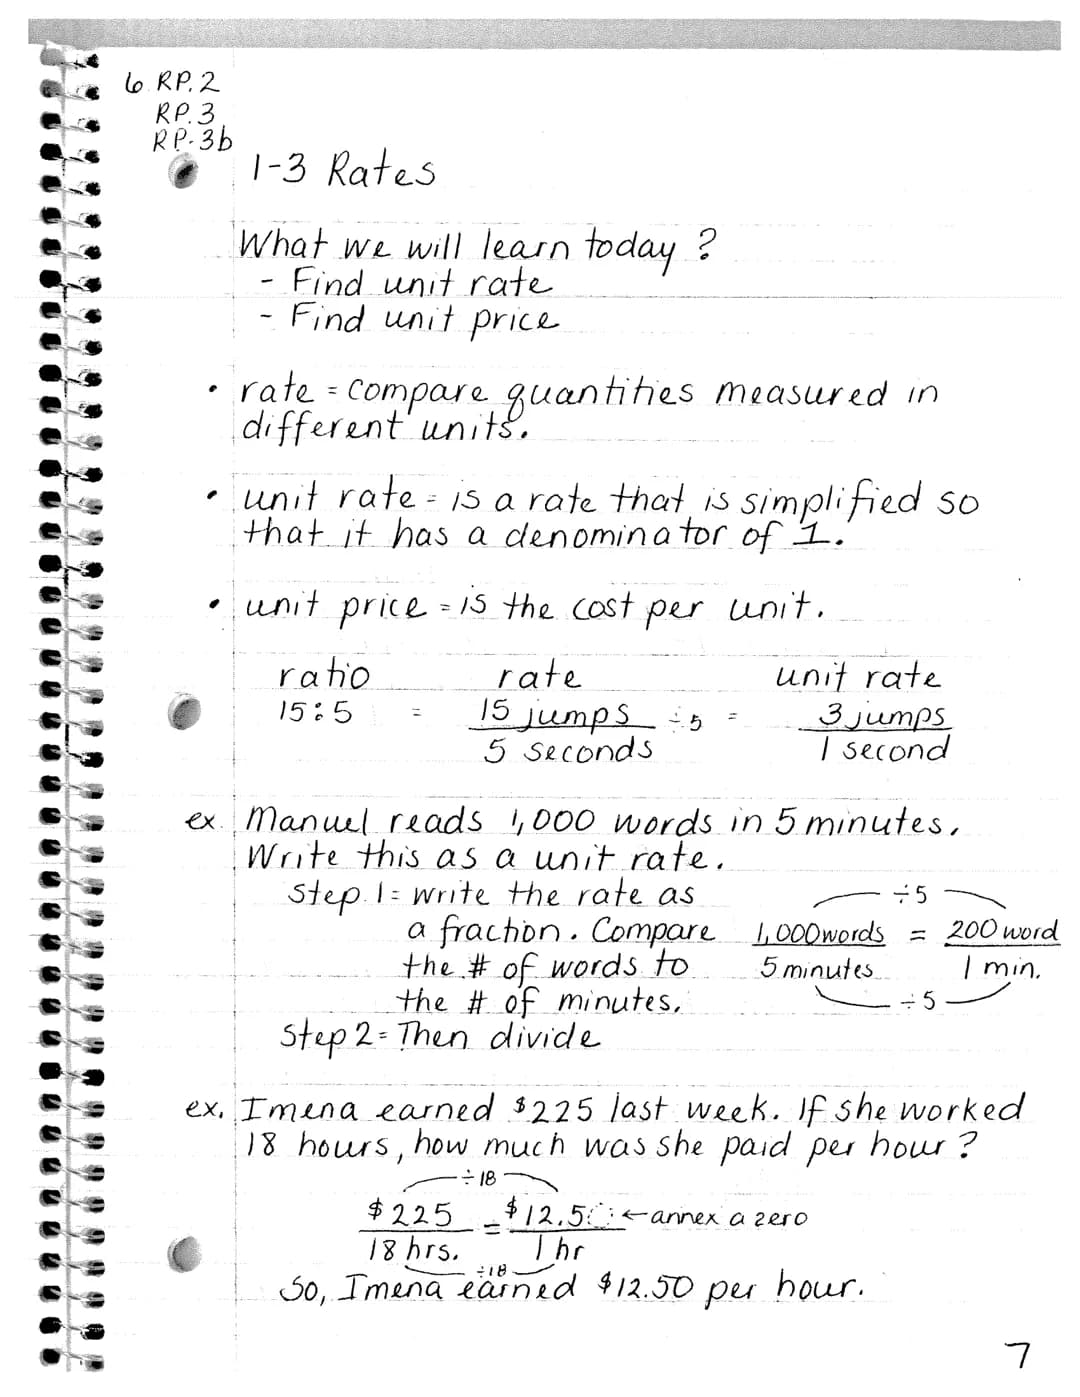 6.RP.2
RP.3
RP.3b
1-3 Rates
What we will learn today?
- Find unit rate
- Find unit price
• rate = compare quantities measured in
different units.
• unit rate = is a rate that is simplified so
that it has a denominator of 1.
• unit price = is the cost per unit.
ratio rate unit rate
15:5 = 15 jumps ÷5 = 3 jumps
5 seconds 1 second
ex. Manuel reads 1,000 words in 5 minutes.
Write this as a unit rate.
Step 1 = write the rate as ÷5
a fraction. Compare 1,000 words = 200 word
the # of words to 5 minutes 1 min.
the # of minutes. ÷5
Step 2 = Then divide
ex. Imena earned $225 last week. If she worked
18 hours, how much was she paid per hour?
÷18
$225 = $12.50 ← annex a zero
18 hrs. 1 hr
÷18
So, Imena earned $12.50 per hour.
7